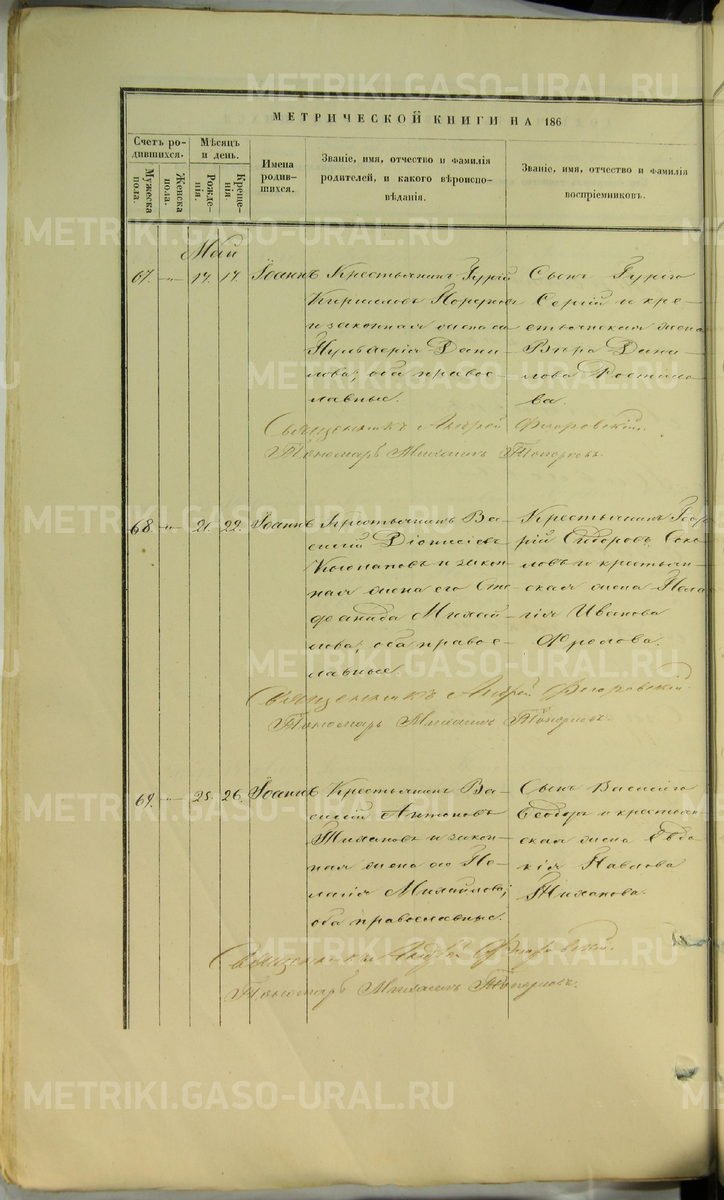 METRIKI.GASO-URAL.RU
МЕТРИЧЕСКОЙ КНИГИ НА 186
Счетъ родившихся.
Мужеска пола.
Женска пола.
Мѣсяцъ и день.
Рожденія.
Крещенія.
Имена родившихся.
Званіе, имя, отчество и фамилія родителей, и какого вѣроисповѣданія.
Званіе, имя, отчество и фамилія воспріемниковъ.
Май
67. 17. 17. Іоаннъ
Крестьянинъ Гурій
Кириловъ
и законная жена его
Дани-
лова; оба правос-
лавные.
Сынъ Гурія
Сергій и кре-
стьянская жена
Вѣра Дани-
лова
Священникъ Андрей Флоровскій.
Пономарь Михаилъ Топорковъ.
68. 21. 22. Іоаннъ
Крестьянинъ Ва-
силій Діонисіевъ
и закон-
ная жена его Сте-
фанида Михай-
лова; оба правос-
лавные.
Крестьянинъ Геор-
гій Сидоровъ Соко-
ловъ и крестьян-
ская жена Пела-
гія Иванова
Фролова.
Священникъ Андрей Флоровскій.
Пономарь Михаилъ Топорковъ.
69. 25. 26. Іоаннъ
Крестьянинъ Ва-
силій Антоновъ
и закон-
ная жена его Пе-
лагія Михайлова;
оба православные.
Сынъ Василія
Ѳеодоръ и крестьян-
ская жена Евдо-
кія Павлова
Священникъ Андрей Флоровскій.
Пономарь Михаилъ Топорковъ.